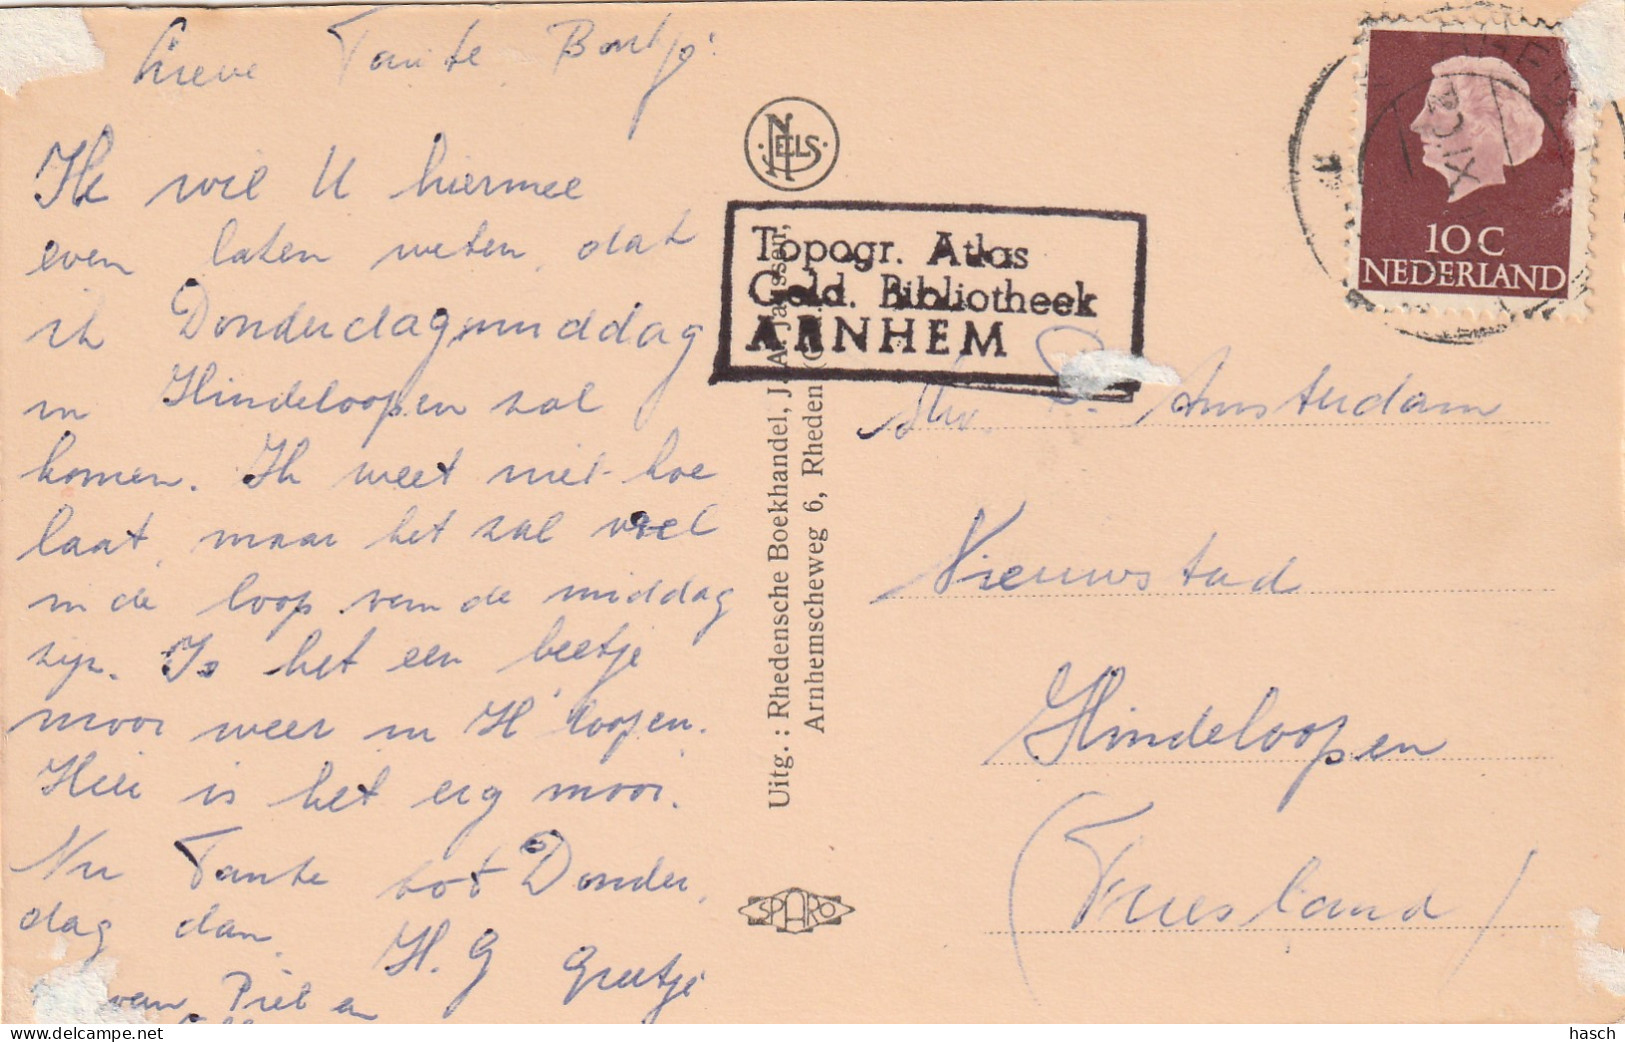 Lieve Tante Bontje
Ik wil U hiermee
even laten weten, dat
ik Donderdagmiddag
in Hindeloopen zal
komen. Ik weet niet hoe
laat, maar het zal veel
in de loop van de middag
zijn. Is het een beetje
mooi weer in H'loopen.
Hier is het erg mooi.
Nu Tante tot Donder,
dag dan. H. G Greetje
van Piet en
NELS
Topogr. Atlas
Geld. Bibliotheek
ARNHEM
Uitg. : Rhedensche Boekhandel, J. A. Janssen,
Arnhemscheweg 6, Rheden
SPARO
10 C
NEDERLAND
Amsterdam
Nieuwstad
Hindeloopen
(Friesland)
hasch